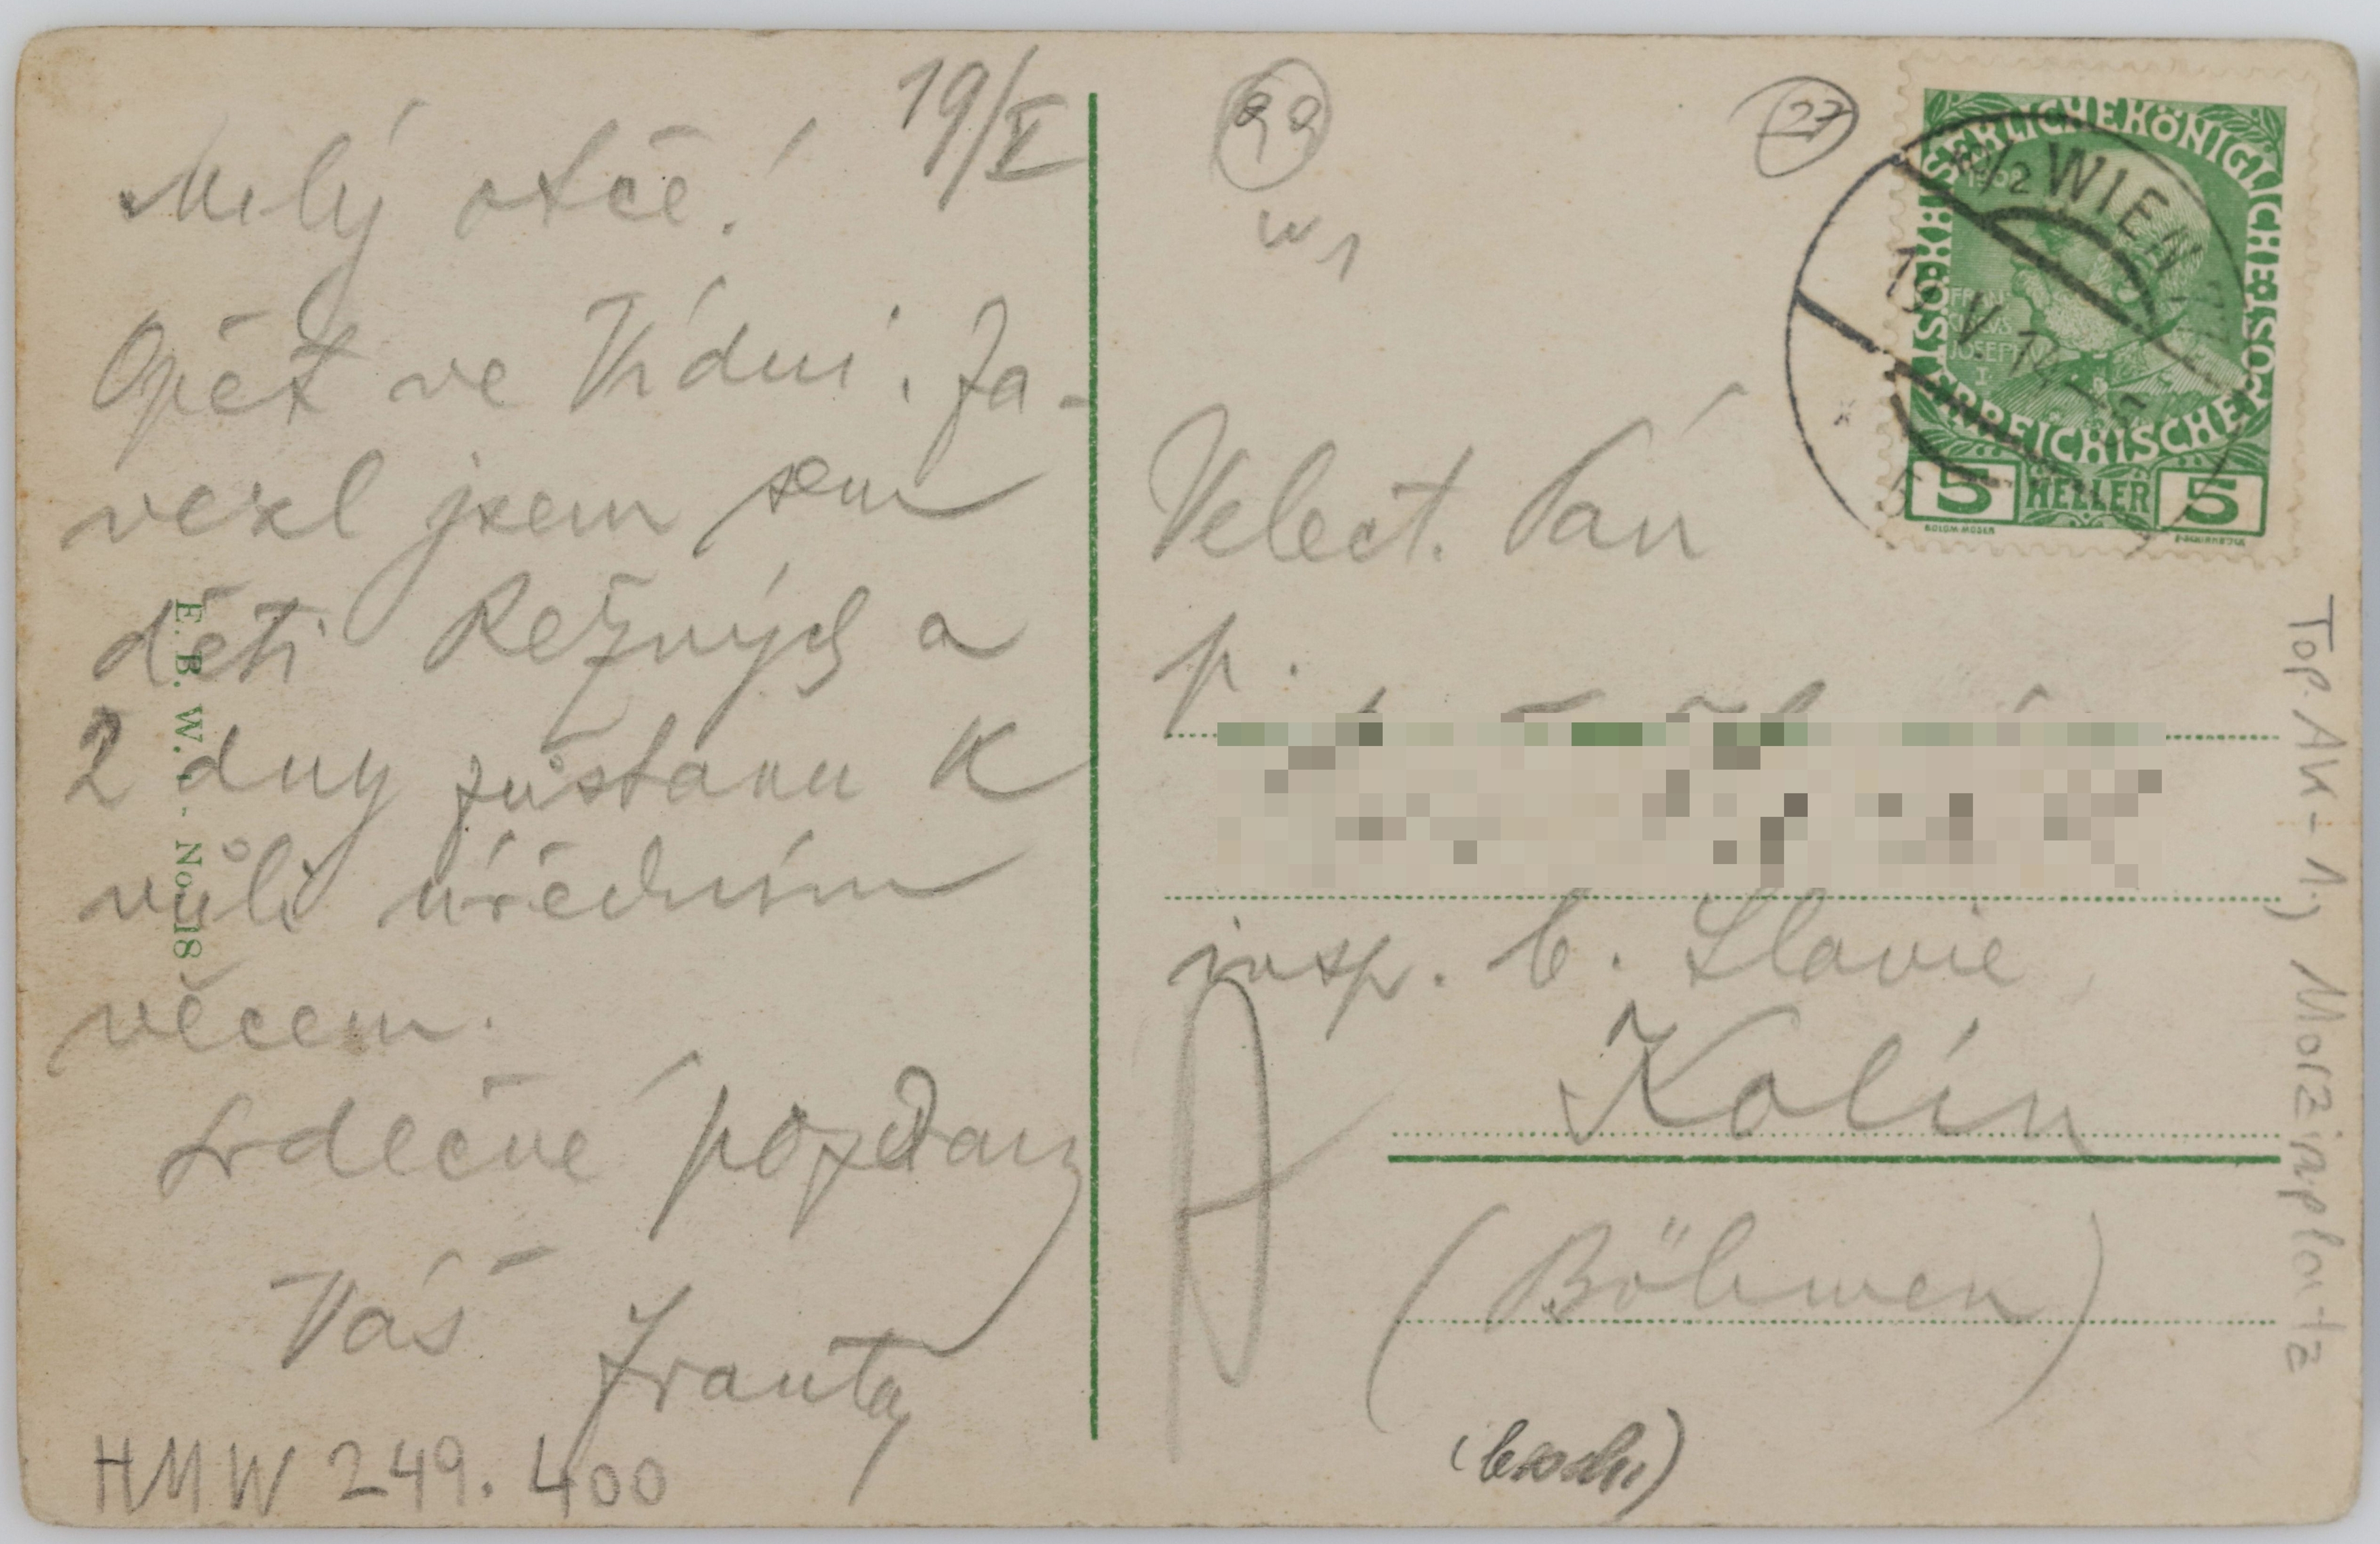 19/V
Milý otče!
Opět ve Vídni. Za-
vezl jsem sem
děti Režných a
2 dny zůstanu k
vůli úředním
věcem.
Srdečné pozdravy
Váš Franta
HMW 249.400
E. B. W. I - No 18
99
W 1
27
KAISERLICHE KÖNIGLICHE
ÖSTERREICHISCHE POST
FRANCISCVS
JOSEPHVS
I.
5 HELLER 5
WIEN
19. V. 14
Velect. Pán
p.
insp. b. Slavie
Kolín
(Böhmen)
Top. AK-1.) Morzinplatz